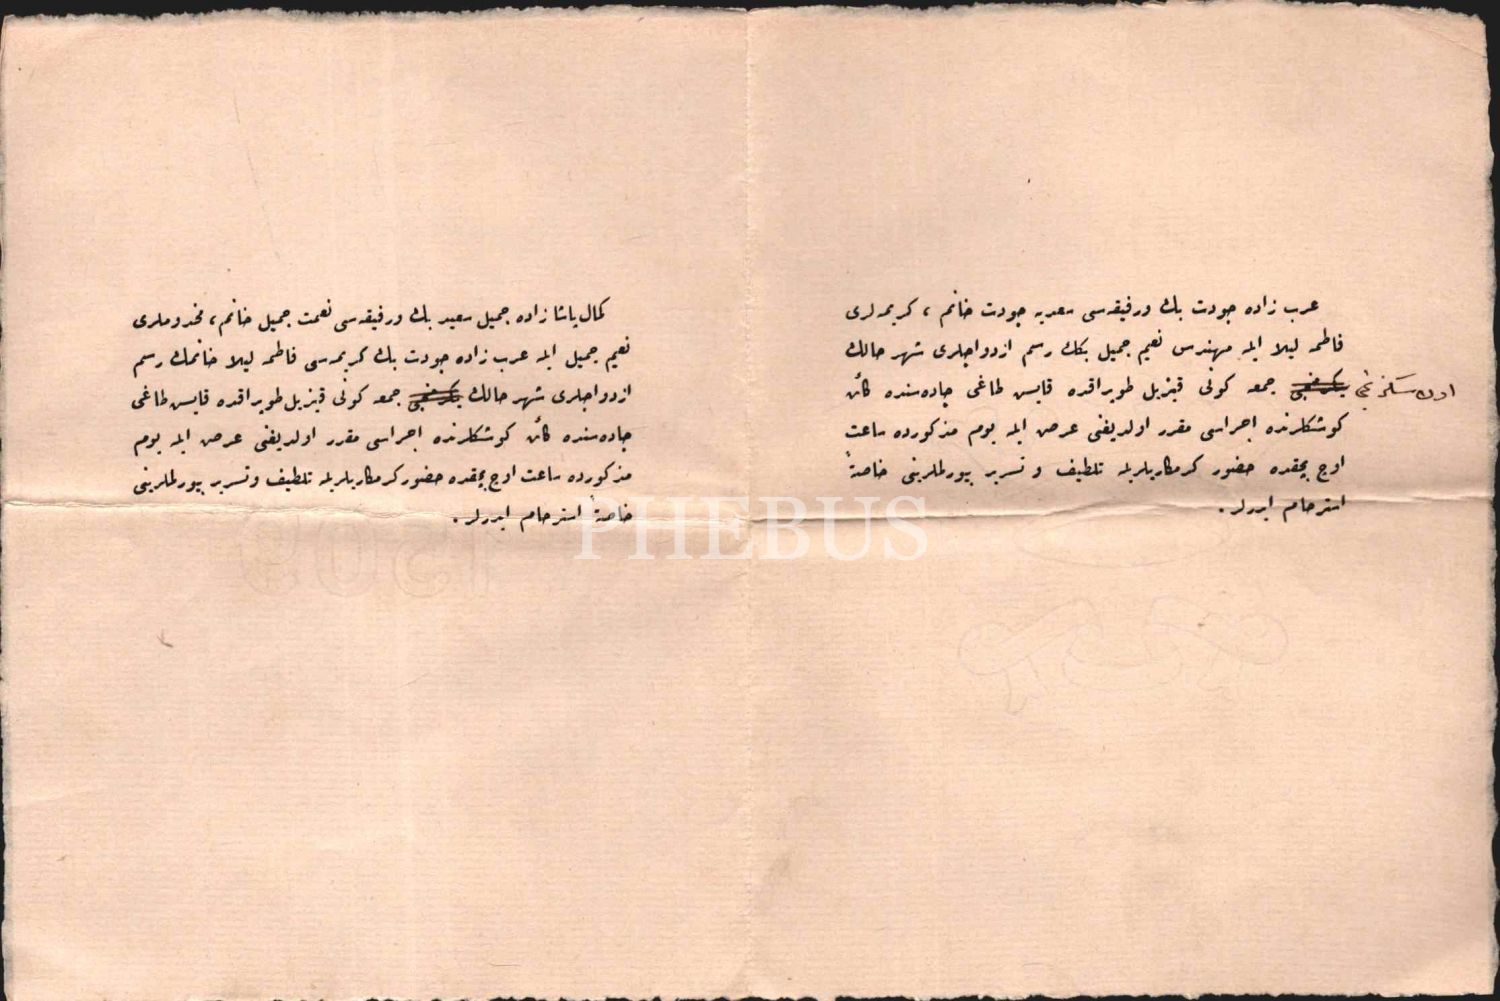 عرب زاده جودت بك ورفيقه‌سی سعديه جودت خانم ، كريمه‌لری
فاطمه ليلا ايله مهندس نعيم جميل بكك رسم ازدواجلری شهر حالك
اون سكزنجی جمعه كونی قيزيل طوپراقده قايس طاغی جاده‌سنده كائن
كوشكلرنده اجراسی مقرر اولديغنی عرض ايله يوم مذكورده ساعت
اوچ بچقده حضور كرمكاريلريله تلطيف و تسرير بيورلملرينی خاصةً
استرحام ايدرلر .
كمال پاشا زاده جميل سعيد بك ورفيقه‌سی نعمت جميل خانم ، مخدوملری
نعيم جميل ايله عرب زاده جودت بك كريمه‌سی فاطمه ليلا خانمك رسم
ازدواجلری شهر حالك جمعه كونی قيزيل طوپراقده قايس طاغی
جاده‌سنده كائن كوشكلرنده اجراسی مقرر اولديغنی عرض ايله يوم
مذكورده ساعت اوچ بچقده حضور كرمكاريلريله تلطيف و تسرير بيورلملرينی
خاصةً استرحام ايدرلر .
PHEBUS